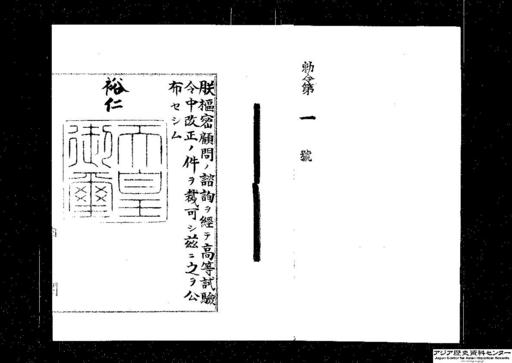 勅令第一號
朕樞密顧問ノ諮詢ヲ經テ高等試驗
令中改正ノ件ヲ裁可シ茲ニ之ヲ公
布セシム
裕仁
天皇
御璽
アジア歴史資料センター
Japan Center for Asian Historical Records